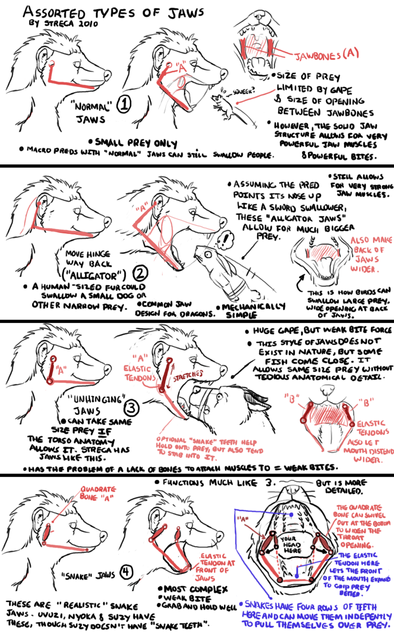 ASSORTED TYPES OF JAWS
BY STREGA 2010
"NORMAL"
JAWS
1
"A"
WHEEE!
JAWBONES (A)
• SIZE OF PREY
LIMITED BY GAPE
& SIZE OF OPENING
BETWEEN JAWBONES
• HOWEVER, THE SOLID JAW
STRUCTURE ALLOWS FOR VERY
POWERFUL JAW MUSCLES
& POWERFUL BITES.
• SMALL PREY ONLY
• MACRO PREDS WITH "NORMAL" JAWS CAN STILL SWALLOW PEOPLE.
MOVE HINGE
WAY BACK
("ALLIGATOR")
2
"A"
• A HUMAN-SIZED FUR COULD
SWALLOW A SMALL DOG OR
OTHER NARROW PREY.
• COMMON JAW
DESIGN FOR DRAGONS.
• MECHANICALLY
SIMPLE
• ASSUMING THE PRED
POINTS ITS NOSE UP
LIKE A SWORD SWALLOWER,
THESE "ALIGATOR JAWS"
ALLOW FOR MUCH BIGGER
PREY.
• STILL ALLOWS
FOR VERY STRONG
JAW MUSCLES.
ALSO MAKE
BACK OF
JAWS
WIDER.
THIS IS HOW BIRDS CAN
SWALLOW LARGE PREY,
WIDE OPENING AT BACK
OF JAWS.
"A"
"UNHINGING"
JAWS
3
"A"
ELASTIC
TENDONS
STRETCH!
• HUGE GAPE, BUT WEAK BITE FORCE
• THIS STYLE OF JAWS DOES NOT
EXIST IN NATURE, BUT SOME
FISH COME CLOSE. IT
ALLOWS SAME SIZE PREY WITHOUT
TEDIOUS ANATOMICAL DETAIL.
"B"
"B"
ELASTIC
TENDONS
ALSO LET
MOUTH DISTEND
WIDER.
• CAN TAKE SAME
SIZE PREY IF
THE TORSO ANATOMY
ALLOWS IT. STREGA HAS
JAWS LIKE THIS.
OPTIONAL "SNAKE" TEETH HELP
HOLD ONTO PREY, BUT ALSO TEND
TO
INTO IT.
• HAS THE PROBLEM OF A LACK OF BONES TO ATTACH MUSCLES TO = WEAK BITES.
QUADRATE
BONE "A"
"SNAKE" JAWS
4
• FUNCTIONS MUCH LIKE 3. BUT IS MORE
DETAILED.
ELASTIC
TENDON AT
FRONT OF
JAWS
• MOST COMPLEX
• WEAK BITE
• GRAB AND HOLD WELL
"A"
YOUR
HEAD
HERE
THE QUADRATE
BONE CAN SWIVEL
OUT AT THE BOTTOM
TO WIDEN THE
THROAT
OPENING.
• THE ELASTIC
TENDON HERE
LETS THE FRONT
OF THE MOUTH EXPAND
TO GRIP PREY
BETTER.
THESE ARE "REALISTIC" SNAKE
JAWS. UVUZI, NYOKA & SUZY HAVE
THESE, THOUGH SUZY DOESN'T HAVE "SNAKE TEETH".
• SNAKES HAVE FOUR ROWS OF TEETH
HERE AND CAN MOVE THEM INDEPENTLY
TO PULL THEMSELVES OVER PREY.